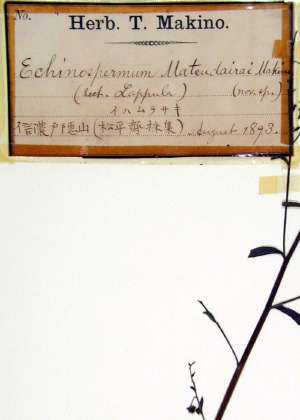 No.
Herb. T. Makino.
Echinospermum Matsudairai Makino
(sect. Lappula) (nov. sp.)
イハムラサキ
信濃戸隠山(松平齊採集) August 1893.